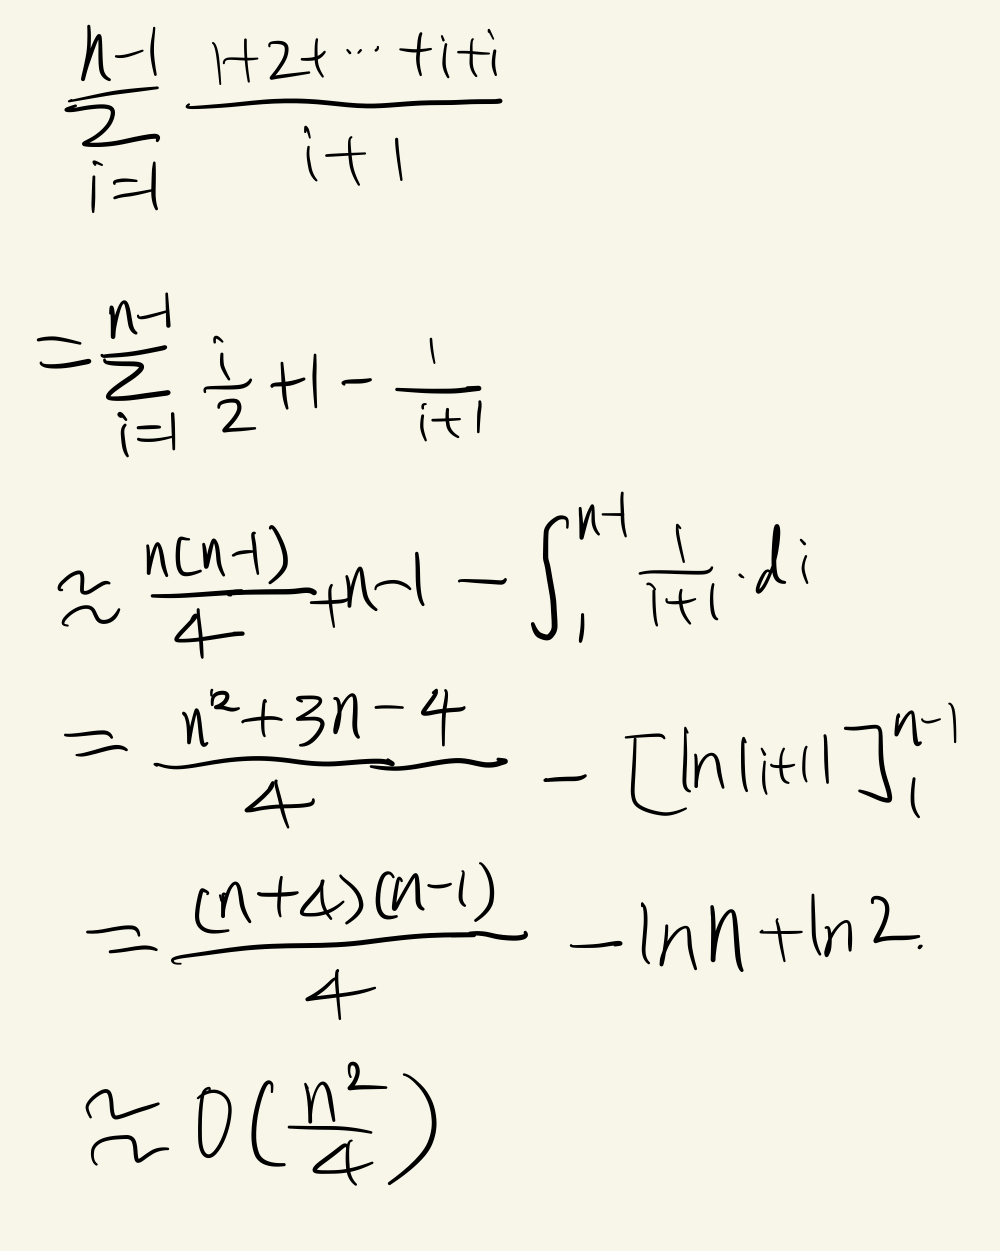 \sum_{i=1}^{n-1} \frac{1+2+\cdots+i+i}{i+1}
= \sum_{i=1}^{n-1} \frac{i}{2} + 1 - \frac{1}{i+1}
\approx \frac{n(n-1)}{4} + n-1 - \int_{1}^{n-1} \frac{1}{i+1} \cdot di
= \frac{n^2+3n-4}{4} - [\ln|i+1|]_{1}^{n-1}
= \frac{(n+4)(n-1)}{4} - \ln n + \ln 2.
\approx O(\frac{n^2}{4})